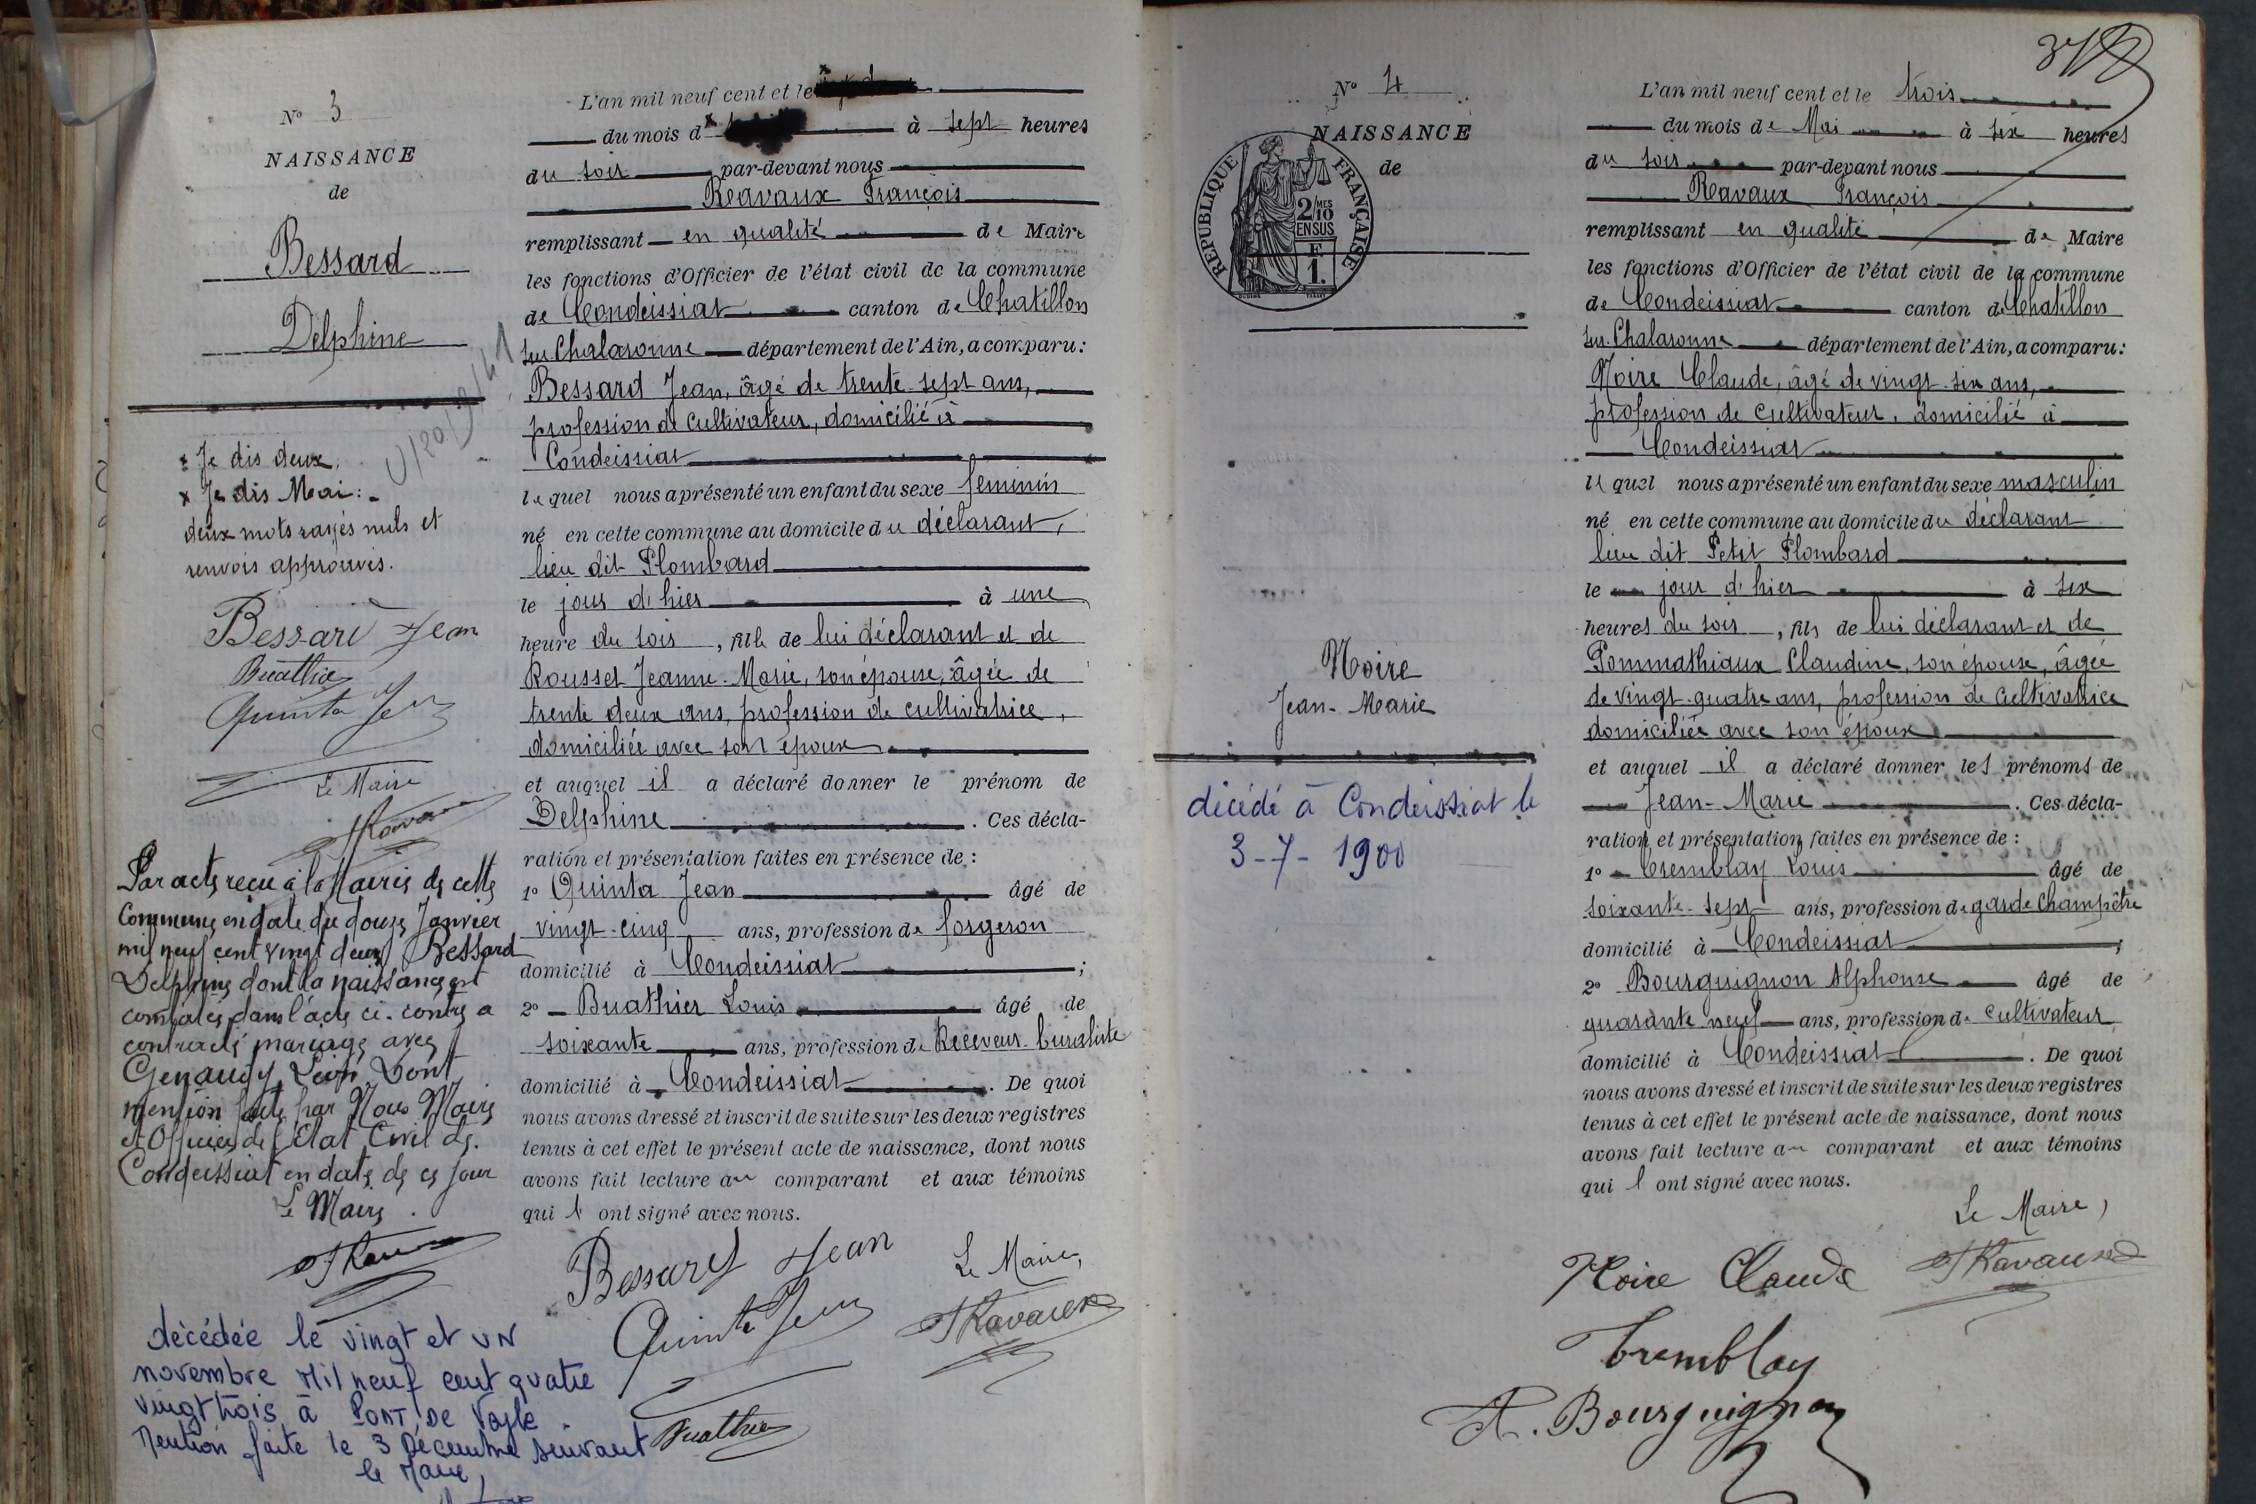 N° 3
NAISSANCE
de
Bessard
Delphine
x Je dis deux.
x Je dis Mai :
deux mots rayés nuls et
renvois approuvés.
Bessard Jean
Buathier
Quinta Jean
Le Maire
F Ravaux
Par acte reçu à la Mairie de cette
Commune en date du douze Janvier
mil neuf cent vingt deux Bessard
Delphine dont la naissance est
constatée dans l'acte ci-contre a
contracté mariage avec
Genaudy Léon Dont
mention faite par Nous Maire
et Officier de l'Etat Civil de
Condeissiat en date de ce jour
Le Maire
F Ravaux
décédée le vingt et un
novembre Mil neuf cent quatre
vingt trois à PONT DE Veyle
Mention faite le 3 Décembre suivant
le Maire,
L'an mil neuf cent et le
du mois d à sept heures
du soir par-devant nous
Ravaux François
remplissant en qualité de Maire
les fonctions d'Officier de l'état civil de la commune
de Condeissiat canton de Chatillon
sur Chalaronne département de l'Ain, a comparu :
Bessard Jean, âgé de trente-sept ans,
profession de cultivateur, domicilié à
Condeissiat
lequel nous a présenté un enfant du sexe féminin
né en cette commune au domicile du déclarant,
lieu dit Plombard
le jour d'hier à une
heure du soir, fille de lui déclarant et de
Rousset Jeanne-Marie, son épouse, âgée de
trente deux ans, profession de cultivatrice,
domiciliée avec son époux
et auquel il a déclaré donner le prénom de
Delphine. Ces décla-
ration et présentation faites en présence de :
1° Quinta Jean âgé de
vingt-cinq ans, profession de forgeron
domicilié à Condeissiat ;
2° Buathier Louis âgé de
soixante ans, profession de Receveur-buraliste
domicilié à Condeissiat. De quoi
nous avons dressé et inscrit de suite sur les deux registres
tenus à cet effet le présent acte de naissance, dont nous
avons fait lecture au comparant et aux témoins
qui l ont signé avec nous.
Bessard Jean Le Maire,
Quinta Jean F Ravaux
Buathier
N° 4
NAISSANCE
de
REPUBLIQUE FRANÇAISE
2/10 MES
EN SUS
F.
1.
Noire
Jean-Marie
décédé à Condeissiat le
3-7-1900
L'an mil neuf cent et le trois
du mois de Mai à six heures
du soir par-devant nous
Ravaux François
remplissant en qualité de Maire
les fonctions d'Officier de l'état civil de la commune
de Condeissiat canton de Chatillon
sur-Chalaronne département de l'Ain, a comparu :
Noire Claude, âgé de vingt-six ans,
profession de cultivateur, domicilié à
Condeissiat
lequel nous a présenté un enfant du sexe masculin
né en cette commune au domicile du déclarant
lieu dit Petit Plombard
le jour d'hier à six
heures du soir, fils de lui déclarant et de
Pommathiaux Claudine, son épouse, âgée
de vingt-quatre ans, profession de cultivatrice
domiciliée avec son époux
et auquel il a déclaré donner les prénoms de
Jean-Marie. Ces décla-
ration et présentation faites en présence de :
1° Tremblay Louis âgé de
soixante-sept ans, profession de garde champêtre
domicilié à Condeissiat ;
2° Bourguignon Alphonse âgé de
quarante neuf ans, profession de cultivateur
domicilié à Condeissiat. De quoi
nous avons dressé et inscrit de suite sur les deux registres
tenus à cet effet le présent acte de naissance, dont nous
avons fait lecture au comparant et aux témoins
qui l ont signé avec nous.
Le Maire,
Noire Claude F Ravaux
Tremblay
A. Bourguignon